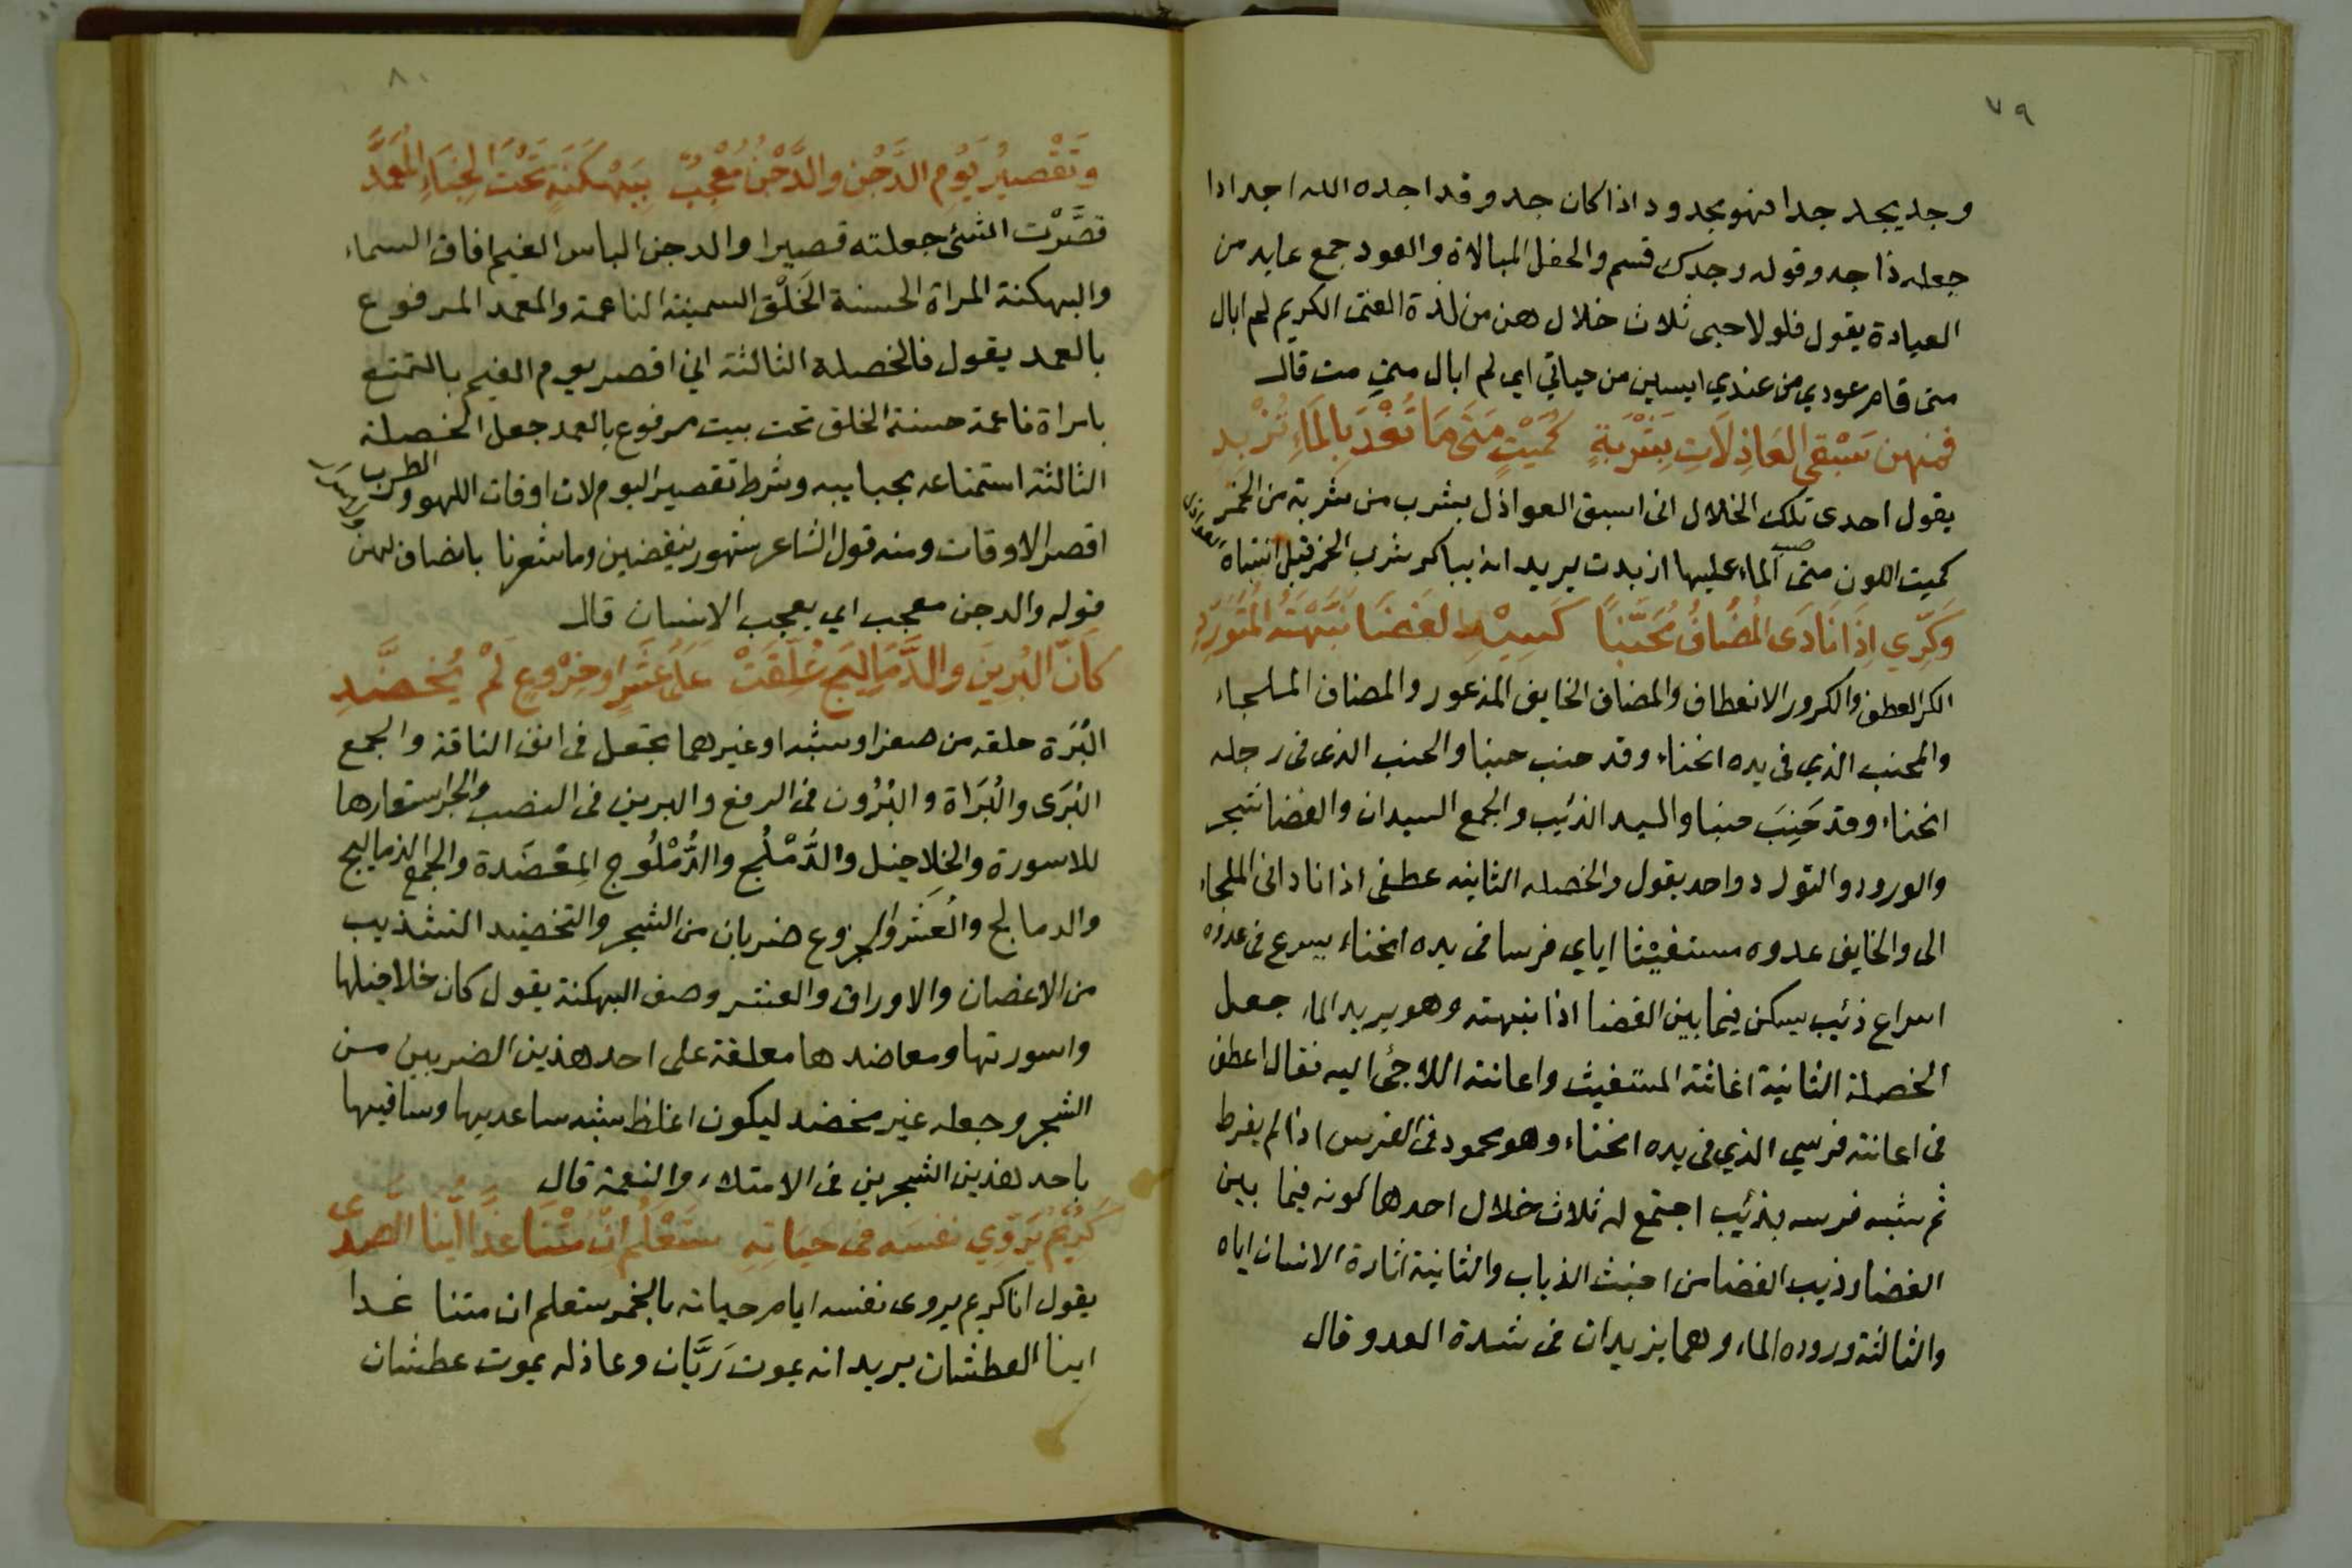 ٧٩
وجد يجد جدا فهو مجدود اذا كان جد وقد اجده الله اجدادا
جعله ذا جد وقوله وجدك قسم والحفل المبالاة والعود جمع عايد من
العيادة يقول فلولا حبى ثلاث خلال هن من لذة الفتى الكريم لم ابال
متى قام عودي من عندي ايسين من حياتي اي لم ابال متى مت قال
فمنهن سَبْقي العَاذِلَاتِ بِشَرْبَةٍ كُمَيْتٍ مَتَى مَا تُعْدَ بِالمَاءِ تُزْبِد
يقول احدى تلك الخلال انى اسبق العواذل بشرب من شربة من الخمر
كميت اللون متى صب الماء عليها ازبدت يريد انه يباكر شرب الخمر قبل انتباه العواذل
وَكَرِّي اِذَا نَادَى المُضَافُ مُحَنَّبًا كَسِيْدِ الغَضَا نَبَّهْتَهُ المُتَوَرِّدِ
الكر العطف والكرور الانعطاف والمضاف الخايف المذعور والمضاف الملجاء
والمحنب الذي فى يده انحناء وقد حنب حنبا والحنب الذى فى رجله
انحناء وقد حَنِبَ حنبا والسيد الذئيب والجمع السيدان والغضا شجر
والورود والتورد واحد يقول والخصله الثانيه عطفى اذا نادانى الملجاء
الى والخايف عدوه مستغيثا اياي فرسا فى يده انحناء يسرع فى عدوه
اسراع ذئيب يسكن فيما بين الغضا اذا نبهته وهو يريد الماء جعل
الخصلة الثانية اغاثة المستغيث واعانته اللاجئ اليه فقال اعطف
فى اعانته فرسي الذي فى يده انحناء وهو محمود فى الفرس اذا لم يفرط
ثم شبه فرسه بذئيب اجتمع له ثلاث خلال احدها كونه فيما بين
الغضا وذيب الغضا من اخبث الذياب والثانية اثارة الانسان اياه
والثالثة وروده الماء وهما يزيدان فى شدة العدو قال
٨٠
وَتَقْصِيرُ يَوْمِ الدَّجْنِ والدَّجْنُ مُعْجِبٌ بِبَهْكَنَةٍ تَحْتَ الخِبَاءِ المُعَمَّدِ
قصَّرْت الشئ جعلته قصيرا والدجن الباس الغيم افاق السماء
والبهكنة المراة الحسنة الخَلْق السمينة الناعمة والمعمد المرفوع
بالعمد يقول فالخصلة الثالثة اني اقصر يوم الغيم بالتمتع
بامراة ناعمة حسنة الخلق تحت بيت مرفوع بالعمد جعل الخصلة
الثالثة استمتاعه بحبايبه وشرط تقصير اليوم لان اوقات اللهو والطرب
اقصر الاوقات ومنه قول الشاعر شهور ينقضين وما شعرنا بانصاف لهن
قوله والدجن معجب اي يعجب الانسان قال
كَاَنَّ البُرِينَ والدَّمَالِيجَ عُلِّقَتْ عَلَى عُشَرٍ او خِرْوِعٍ لَمْ يُخَضَّدِ
البُرَة حلقه من صفر او شبه او غيرهما تجعل فى انف الناقة والجمع
البُرَى والبُرَاة والبُرُون فى الرفع والبرين فى النصب والجر استعارها
للاسورة والخلاخيل والدُّمْلُج والدُّمْلُوج المِعْضَدة والجمع الدماليج
والدمالج والعُشَر والخروع ضربان من الشجر والتخضيد التشذيب
من الاغصان والاوراق والعشر وصف البهكنة يقول كان خلاخيلها
واسورتها ومعاضدها معلقة على احد هذين الضربين من
الشجر وجعله غير مخضد ليكون اغلظ شبه ساعديها وساقيها
باحد هذين الشجرين فى الامتلاء والنعمة قال
كَرِيْمٌ يُرَوِّي نفسَه فى حَيَاتِهِ سَتَعْلَمُ اِنْ مُتْنَا غَدًا اَيُّنا الصَّدى
يقول انا كريم يروى نفسه ايام حياته بالخمر ستعلم ان متنا غدا
اينا العطشان يريد انه يموت رَيَّان وعاذله يموت عطشان